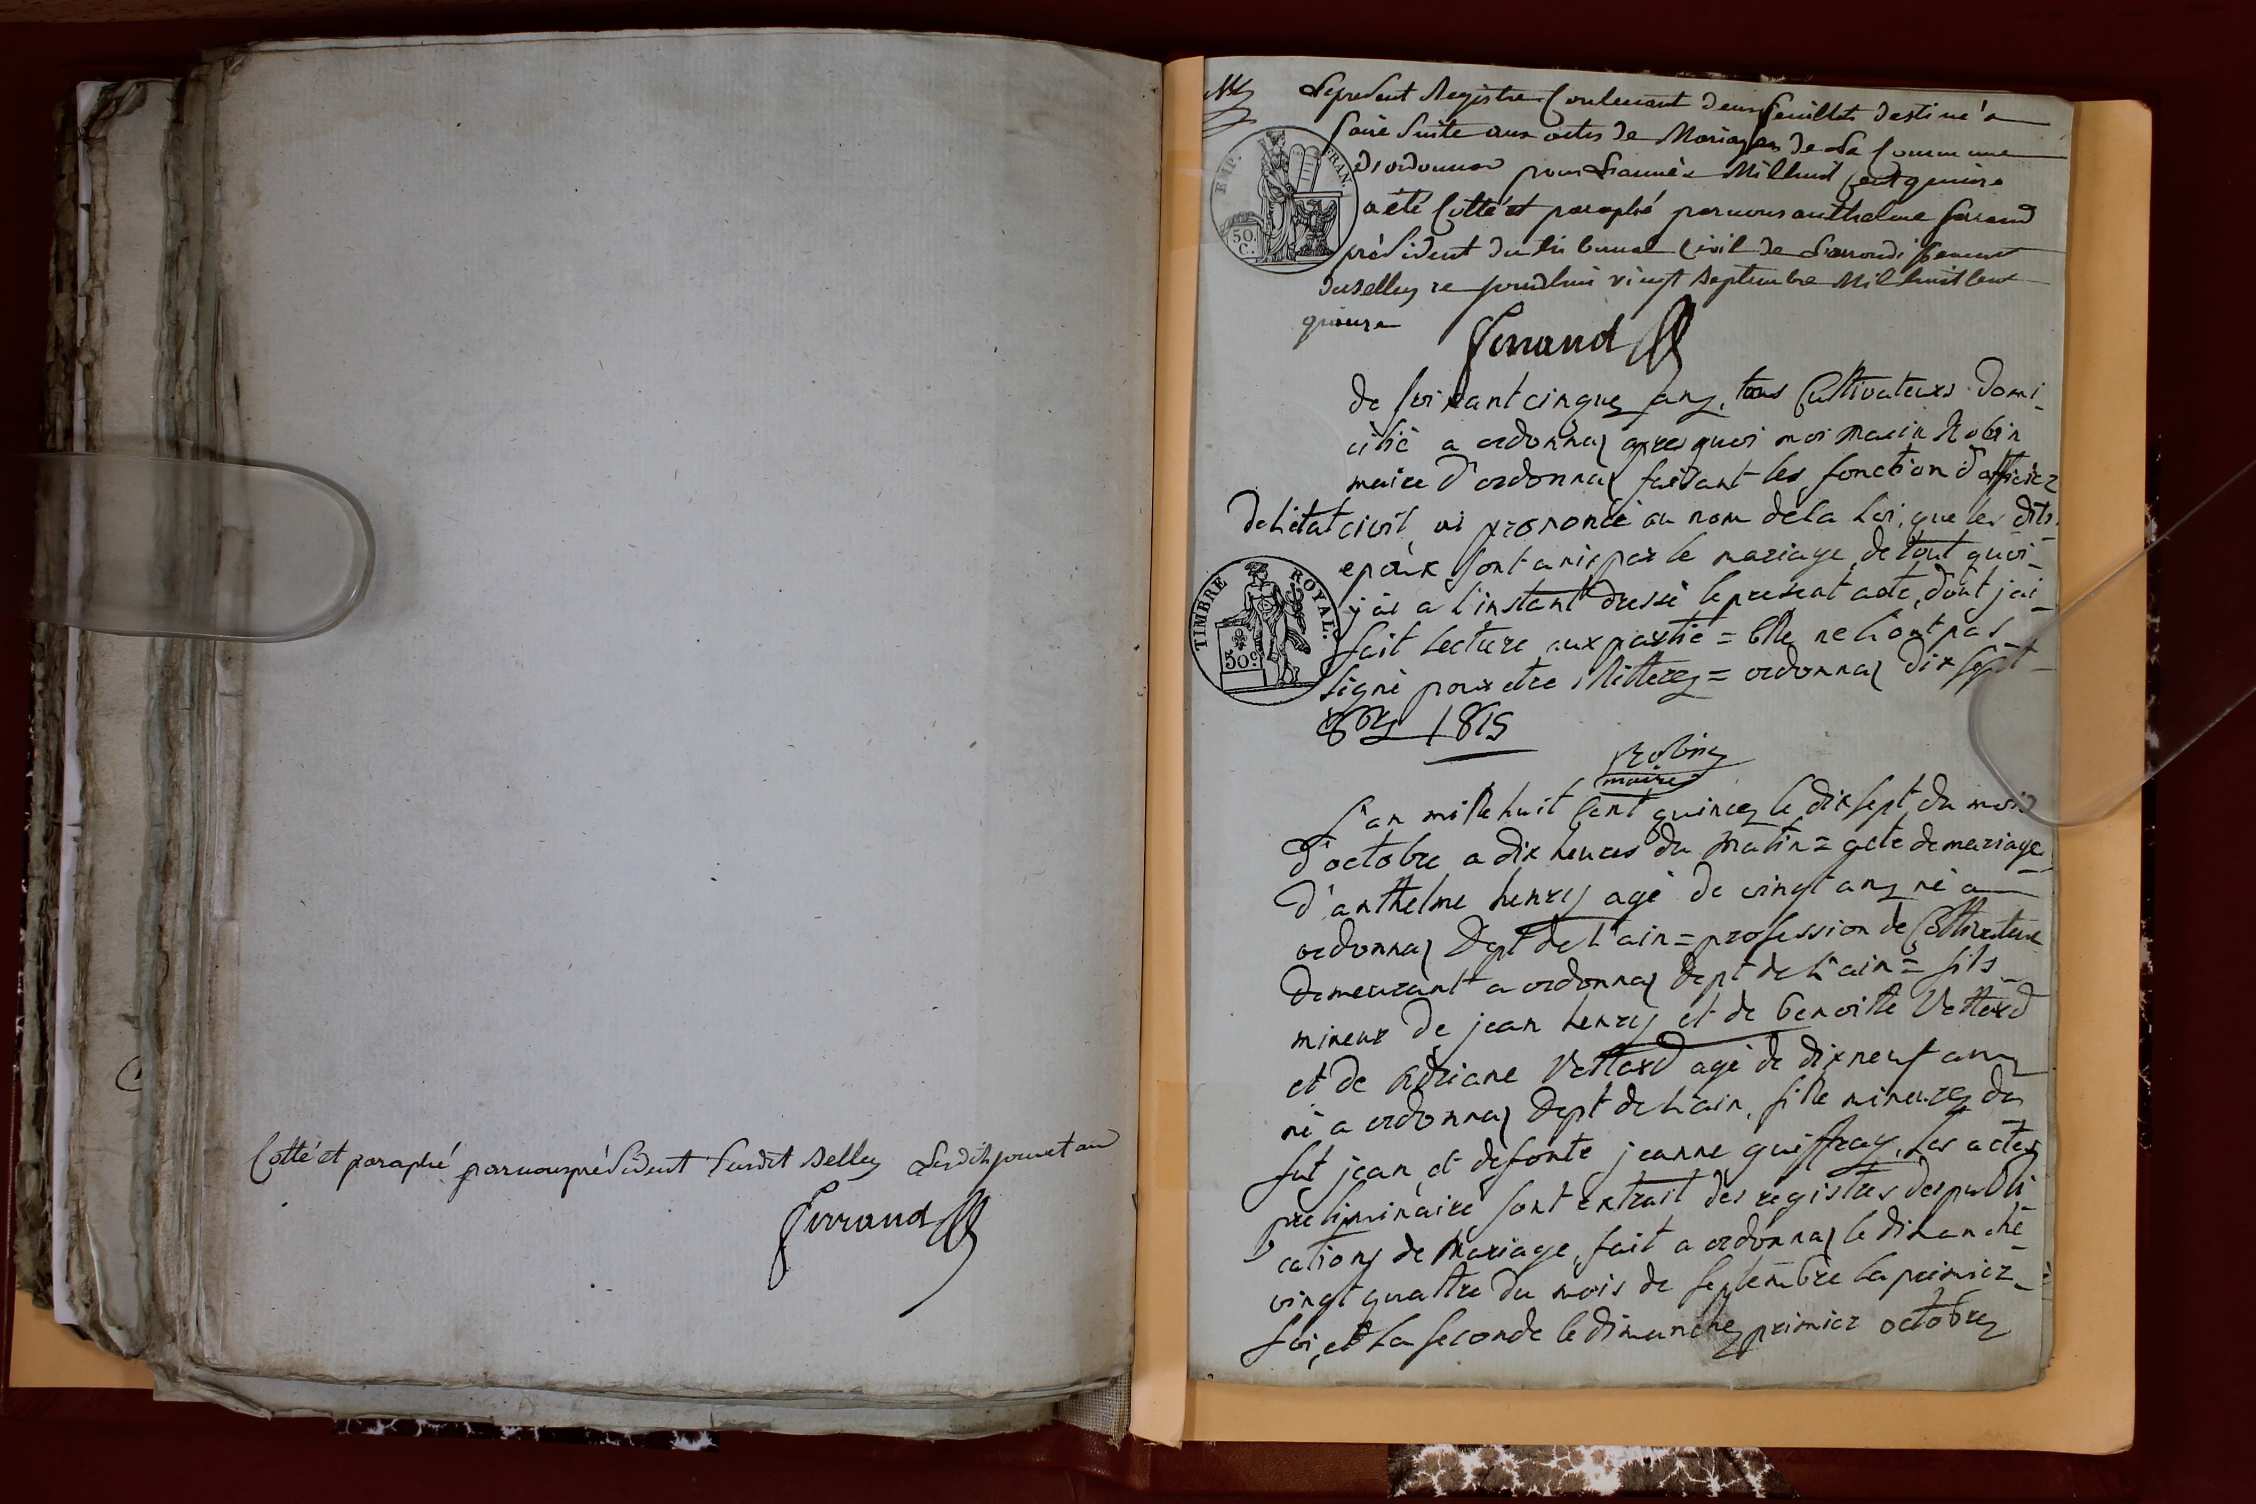 Cotté et paraphé par nous président susdit Belley Lesdits jour et an
Ferrand
Le present Registre Contenant deux feuillets destiné a
faire suite aux actes de Mariages de La Commune
d'ordonnas pour L'année Mil huit Cent quinze
a été Cotté et paraphé par nous anthelme ferrand
président du tribunal Civil de L'arrondissement
de Belley ce jourdhui vingt Septembre Mil huit Cent
quinze
Ferrand
EMP. FRAN.
50 C.
de soixant cinque ans, tous Cultivateurs domi
cilié a ordonnas apres quoi moi marin Robin
maire d'ordonnas faisant les fonction d'officier
de L'état civil, ai prononcé au nom de la Loi, que les dits
epoux sont unis par le mariage, de tout quoi
j'ai a l'instant dressé le present acte, dont j'ai
fait Lecture aux partie = Elle ne L'ont pas
signé pour etre illitterez = ordonnas dix sept
8bre 1815
TIMBRE ROYAL.
50c
Robin
maire
L'an mille huit Cent quinze le dix sept du mois
d'octobre a dix heures du matin = acte de mariage
d'anthelme henry agé de vingt ans né a
ordonnas Dept de L'ain = profession de Cultivateur
demeurant a ordonnas dept de L'ain = fils
mineur de jean henry et de benoitte Vettard
et de Adriane Vettard agé de dix neuf ans
né a ordonnas Dept de L'ain, fille mineure de
fut jean et defonte jeanne guiffray, Les actes
preliminaire sont extrait des registres des publi
cations de mariage, fait a ordonnas le dimanche
vingt quattre du mois de septembre la primier
foi, et La seconde le dimanche primier octobre